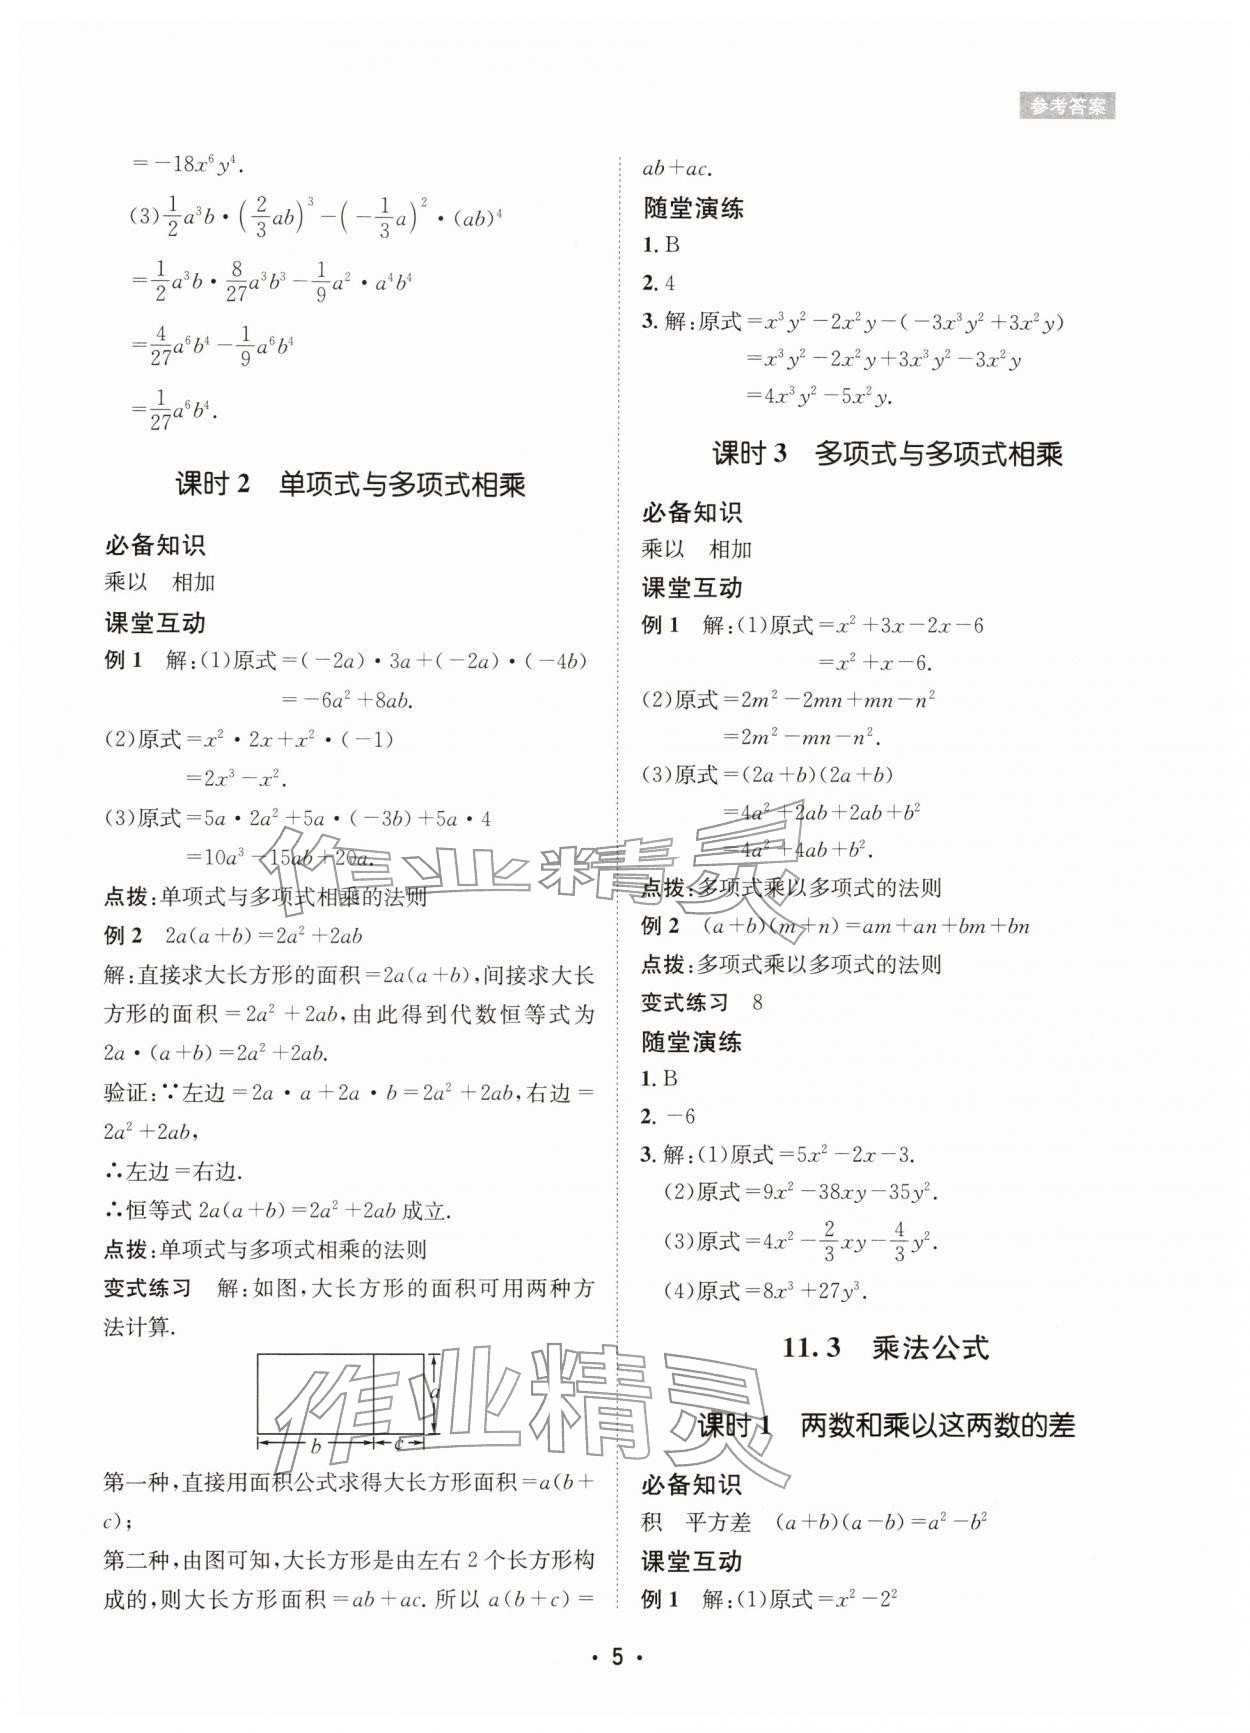 参考答案
=-18x⁶y⁴.
(3)1/2a³b·(2/3ab)³-(-1/3a)²·(ab)⁴
=1/2a³b·8/27a³b³-1/9a²·a⁴b⁴
=4/27a⁶b⁴-1/9a⁶b⁴
=1/27a⁶b⁴.
课时2 单项式与多项式相乘
必备知识
乘以 相加
课堂互动
例1 解:(1)原式=(-2a)·3a+(-2a)·(-4b)
=-6a²+8ab.
(2)原式=x²·2x+x²·(-1)
=2x³-x².
(3)原式=5a·2a²+5a·(-3b)+5a·4
=10a³-15ab+20a.
点拨:单项式与多项式相乘的法则
例2 2a(a+b)=2a²+2ab
解:直接求大长方形的面积=2a(a+b),间接求大长
方形的面积=2a²+2ab,由此得到代数恒等式为
2a·(a+b)=2a²+2ab.
验证:∵左边=2a·a+2a·b=2a²+2ab,右边=
2a²+2ab,
∴左边=右边.
∴恒等式2a(a+b)=2a²+2ab成立.
点拨:单项式与多项式相乘的法则
变式练习 解:如图,大长方形的面积可用两种方
法计算.
a
b c
第一种,直接用面积公式求得大长方形面积=a(b+
c);
第二种,由图可知,大长方形是由左右2个长方形构
成的,则大长方形面积=ab+ac.所以a(b+c)=
ab+ac.
随堂演练
1.B
2.4
3.解:原式=x³y²-2x²y-(-3x³y²+3x²y)
=x³y²-2x²y+3x³y²-3x²y
=4x³y²-5x²y.
课时3 多项式与多项式相乘
必备知识
乘以 相加
课堂互动
例1 解:(1)原式=x²+3x-2x-6
=x²+x-6.
(2)原式=2m²-2mn+mn-n²
=2m²-mn-n².
(3)原式=(2a+b)(2a+b)
=4a²+2ab+2ab+b²
=4a²+4ab+b².
点拨:多项式乘以多项式的法则
例2 (a+b)(m+n)=am+an+bm+bn
点拨:多项式乘以多项式的法则
变式练习 8
随堂演练
1.B
2.-6
3.解:(1)原式=5x²-2x-3.
(2)原式=9x²-38xy-35y².
(3)原式=4x²-2/3xy-4/3y².
(4)原式=8x³+27y³.
11.3 乘法公式
课时1 两数和乘以这两数的差
必备知识
积 平方差 (a+b)(a-b)=a²-b²
课堂互动
例1 解:(1)原式=x²-2²
·5·
作业精灵
作业精灵